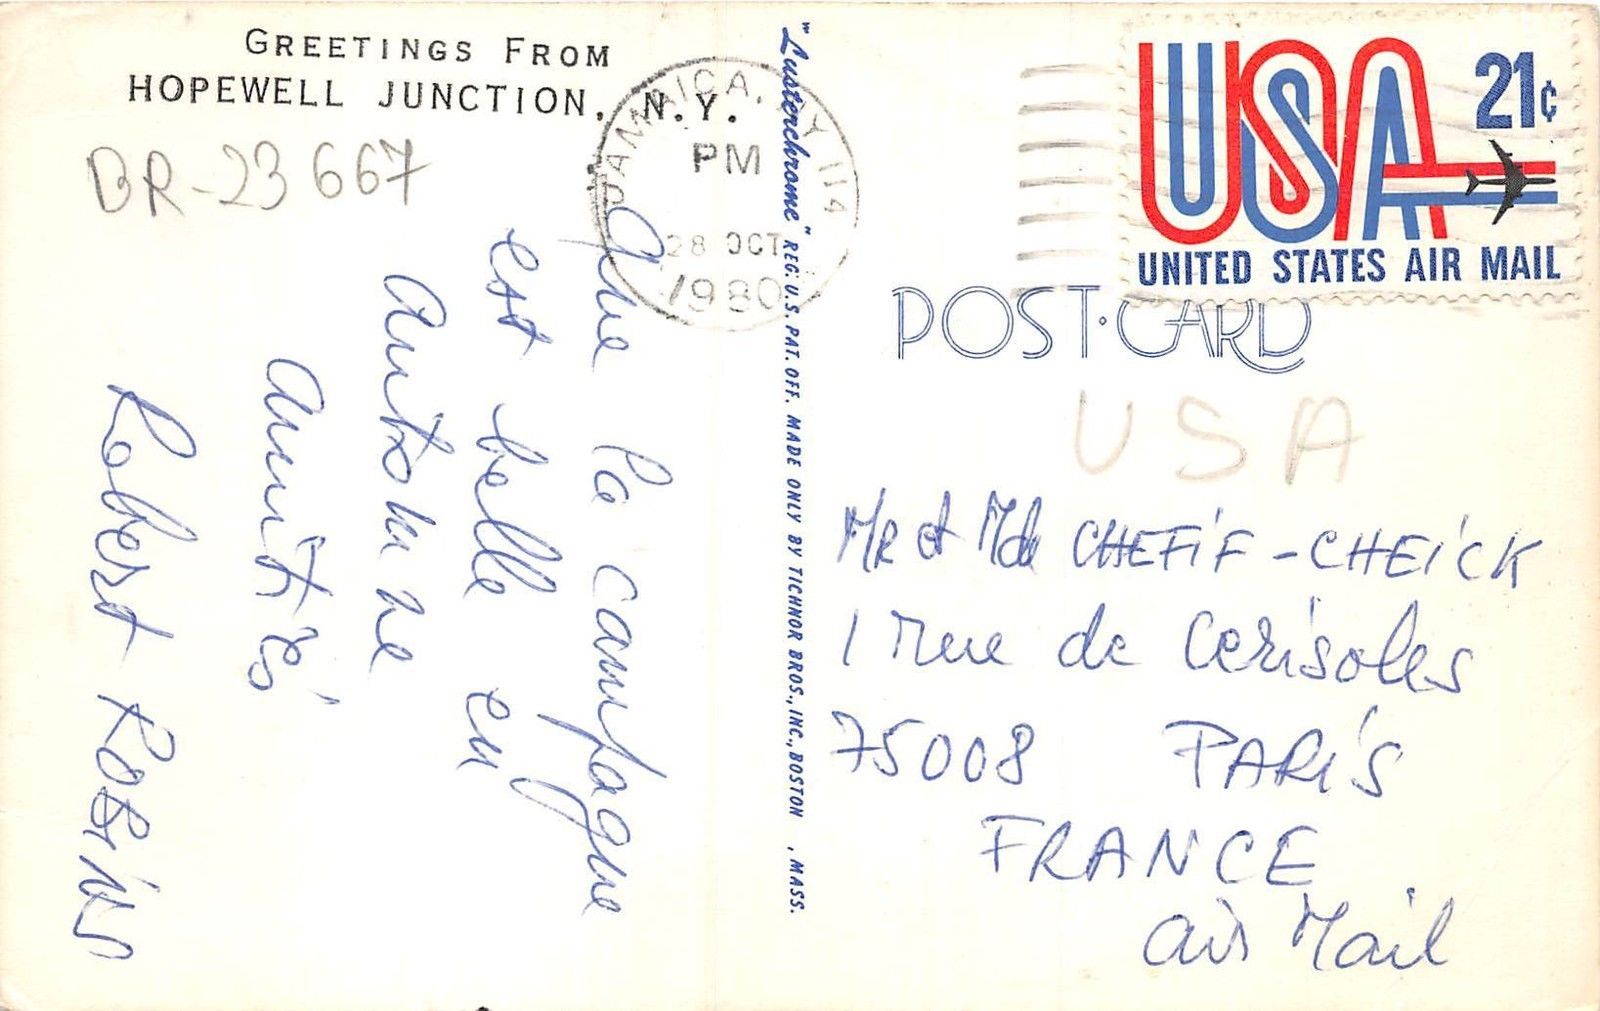 GREETINGS FROM
HOPEWELL JUNCTION, N.Y.
BR-23667
JAMAICA, NY 114
PM
28 OCT
1980
Que la campagne
est belle en
Automne
Amitiés
Robert Robins
"Lusterchrome" REG. U.S. PAT. OFF. MADE ONLY BY TICHNOR BROS., INC., BOSTON , MASS.
USA 21¢
UNITED STATES AIR MAIL
POST·CARD
USA
MR et Mde CHEFIF-CHEICK
1 Rue de Cerisoles
75008 PARIS
FRANCE
Air Mail